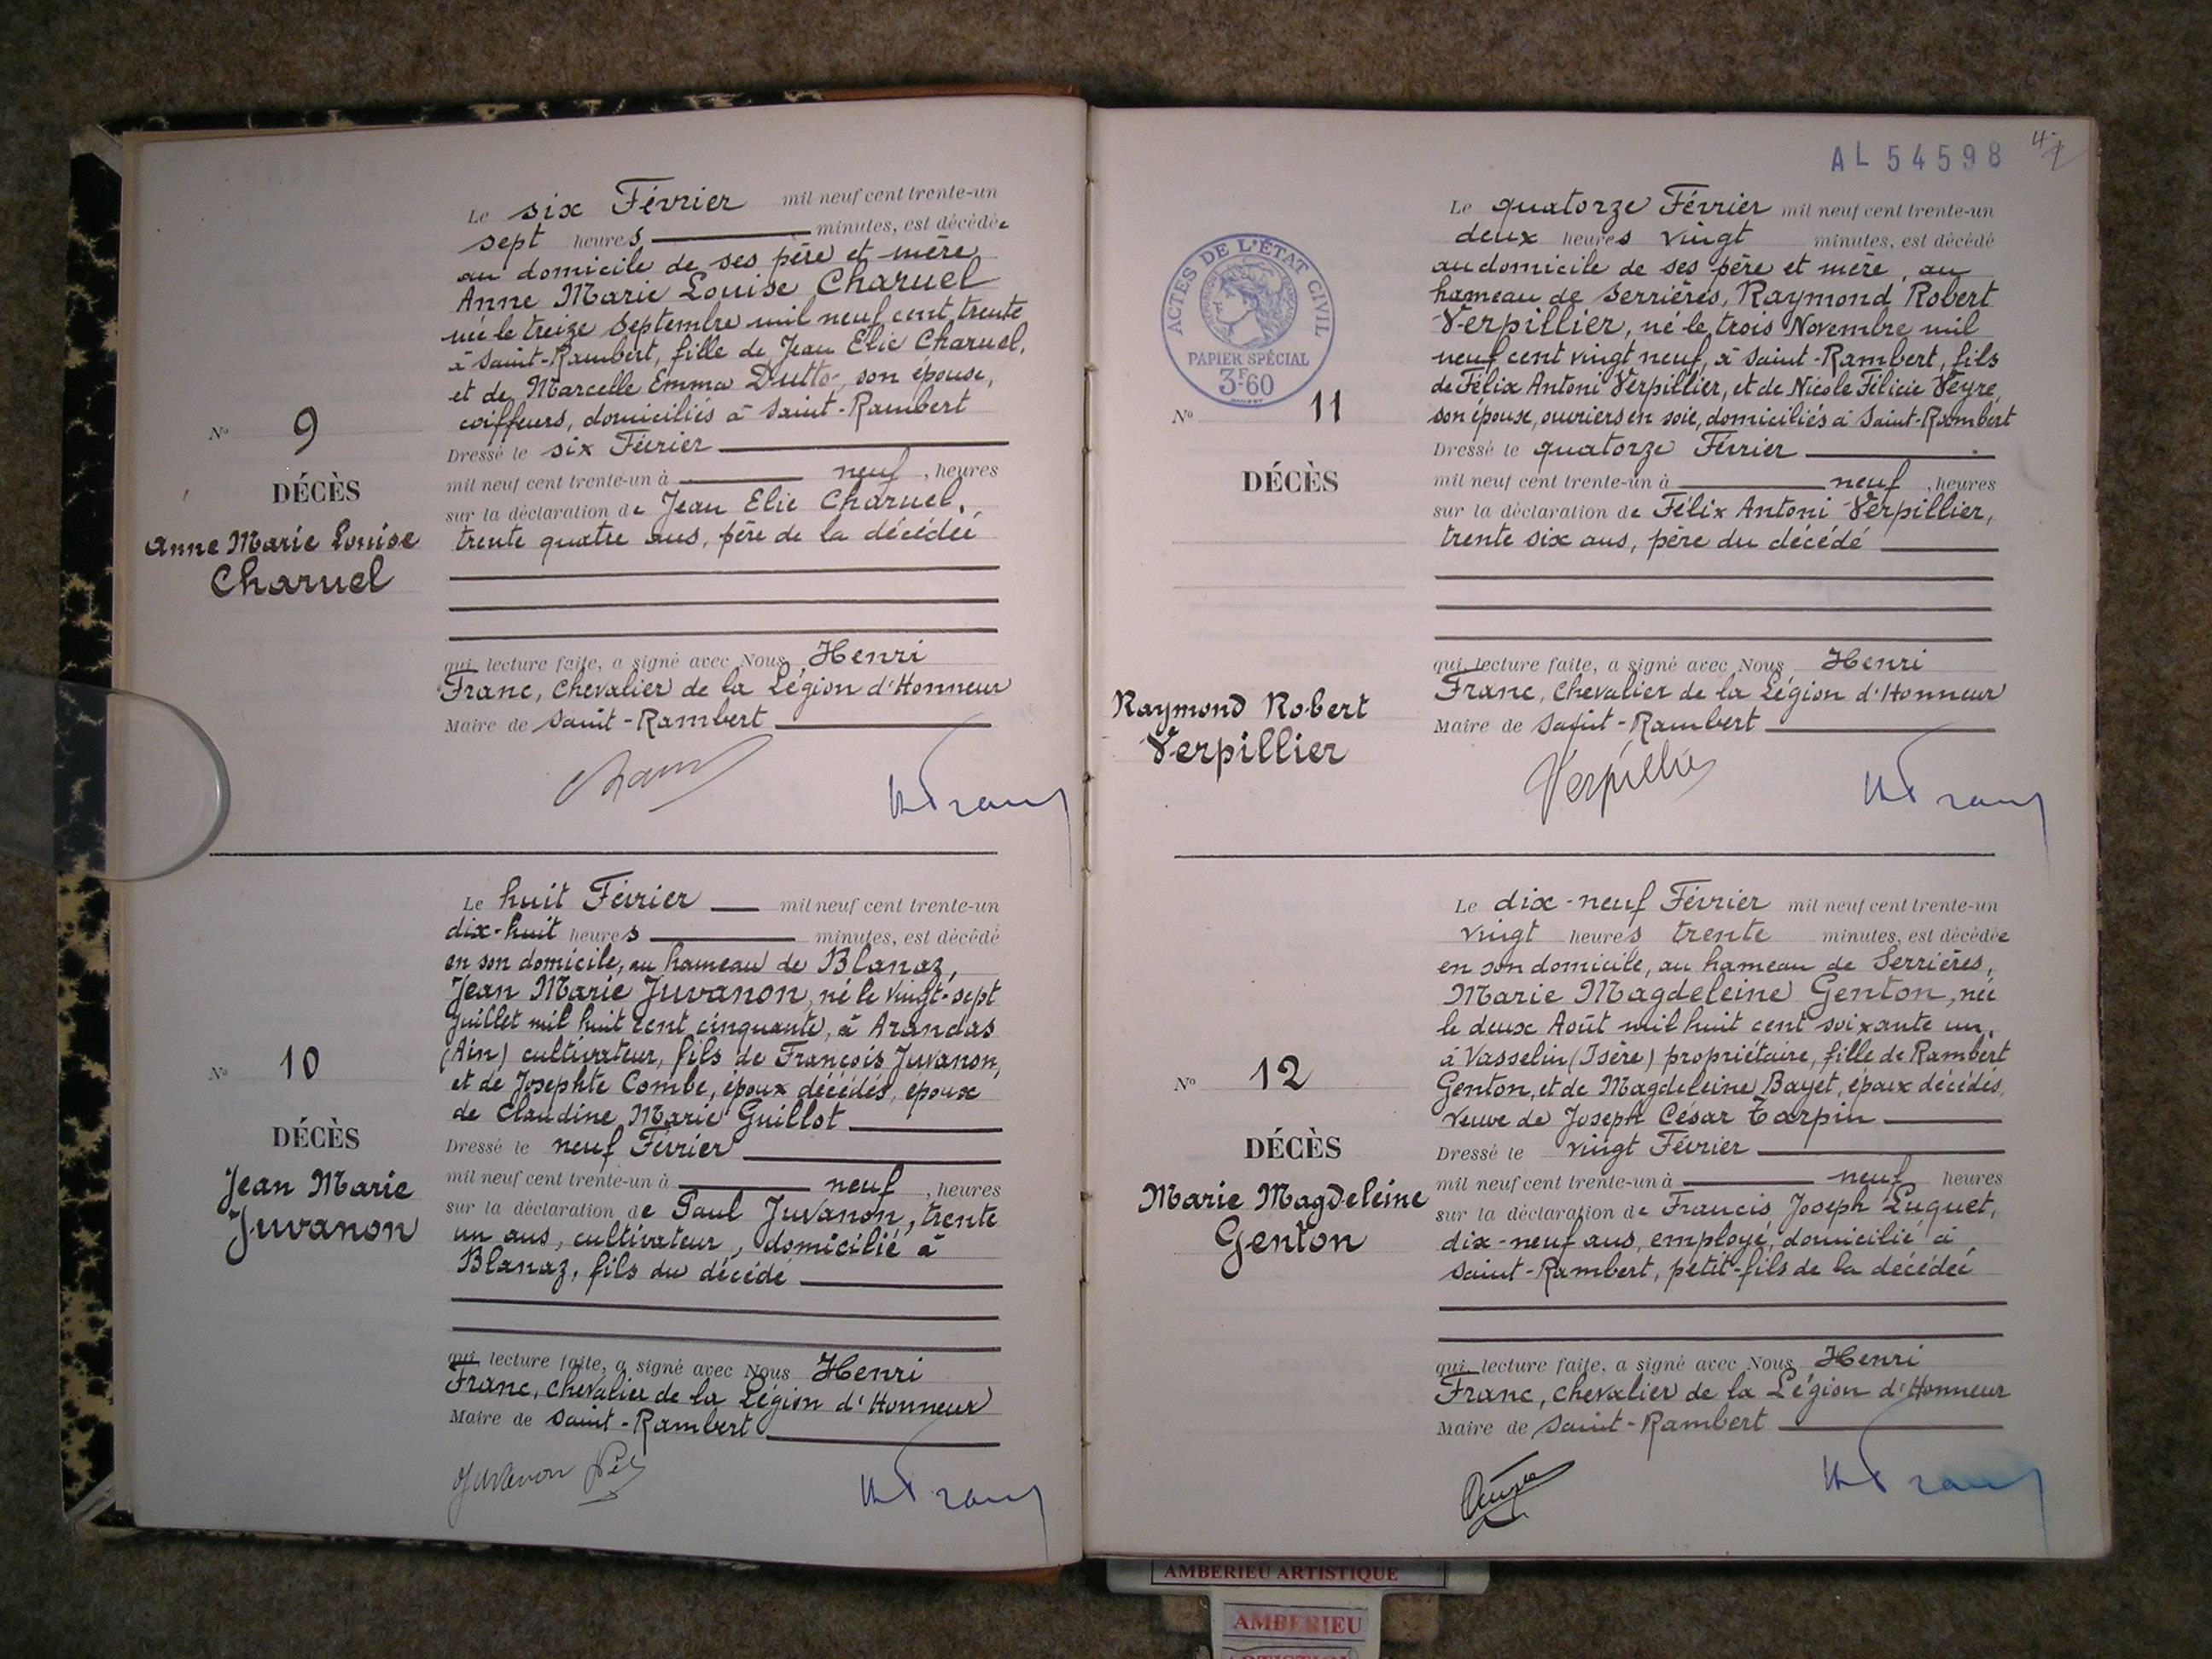 Le six Février mil neuf cent trente-un
sept heures minutes, est décédée
au domicile de ses père et mère
Anne Marie Louise Charuel
née le treize Septembre mil neuf cent trente
à Saint-Rambert, fille de Jean Elie Charuel,
et de Marcelle Emma Dutto, son épouse,
coiffeurs, domiciliés à Saint-Rambert
Nº 9
Dressé le six Février
mil neuf cent trente-un à neuf, heures
DÉCÈS
sur la déclaration de Jean Elie Charuel,
Anne Marie Louise
trente quatre ans, père de la décédée
Charuel
qui, lecture faite, a signé avec Nous, Henri
Franc, Chevalier de la Légion d'Honneur
Maire de Saint-Rambert
Le huit Février mil neuf cent trente-un
dix-huit heures minutes, est décédé
en son domicile, au hameau de Blanaz,
Jean Marie Juvanon, né le vingt-sept
Juillet mil huit cent cinquante, à Arandas
(Ain) cultivateur, fils de François Juvanon,
Nº 10
et de Josephte Combe, époux décédés, époux
de Claudine Marie Guillot
DÉCÈS
Dressé le neuf Février
mil neuf cent trente-un à neuf, heures
Jean Marie
sur la déclaration de Paul Juvanon, trente
Juvanon
un ans, cultivateur, domicilié à
Blanaz, fils du décédé
qui, lecture faite, a signé avec Nous Henri
Franc, chevalier de la Légion d'Honneur
Maire de Saint-Rambert
AL 54598
Le quatorze Février mil neuf cent trente-un
deux heures vingt minutes, est décédé
au domicile de ses père et mère, au
hameau de Serrières, Raymond Robert
Verpillier, né le trois Novembre mil
neuf cent vingt neuf, à Saint-Rambert, fils
de Félix Antoni Verpillier, et de Nicole Félicie Veyre,
son épouse, ouvriers en soie, domiciliés à Saint-Rambert
ACTES DE L'ÉTAT CIVIL
PAPIER SPÉCIAL
3F.60
Nº 11
Dressé le quatorze Février
mil neuf cent trente-un à neuf, heures
DÉCÈS
sur la déclaration de Félix Antoni Verpillier,
trente six ans, père du décédé
qui, lecture faite, a signé avec Nous Henri
Franc, Chevalier de la Légion d'Honneur
Raymond Robert
Maire de Saint-Rambert
Verpillier
Verpillier
Le dix-neuf Février mil neuf cent trente-un
vingt heures trente minutes, est décédée
en son domicile, au hameau de Serrières,
Marie Magdeleine Genton, née
le deux Août mil huit cent soixante un,
à Vasselin (Isère) propriétaire, fille de Rambert
Nº 12
Genton, et de Magdeleine Bayet, époux décédés,
veuve de Joseph César Tarpin
DÉCÈS
Dressé le vingt Février
mil neuf cent trente-un à neuf heures
Marie Magdeleine
sur la déclaration de Francis Joseph Luquet,
Genton
dix-neuf ans, employé, domicilié à
Saint-Rambert, petit-fils de la décédée
qui, lecture faite, a signé avec Nous Henri
Franc, chevalier de la Légion d'Honneur
Maire de Saint-Rambert
AMBERIEU ARTISTIQUE
AMBERIEU